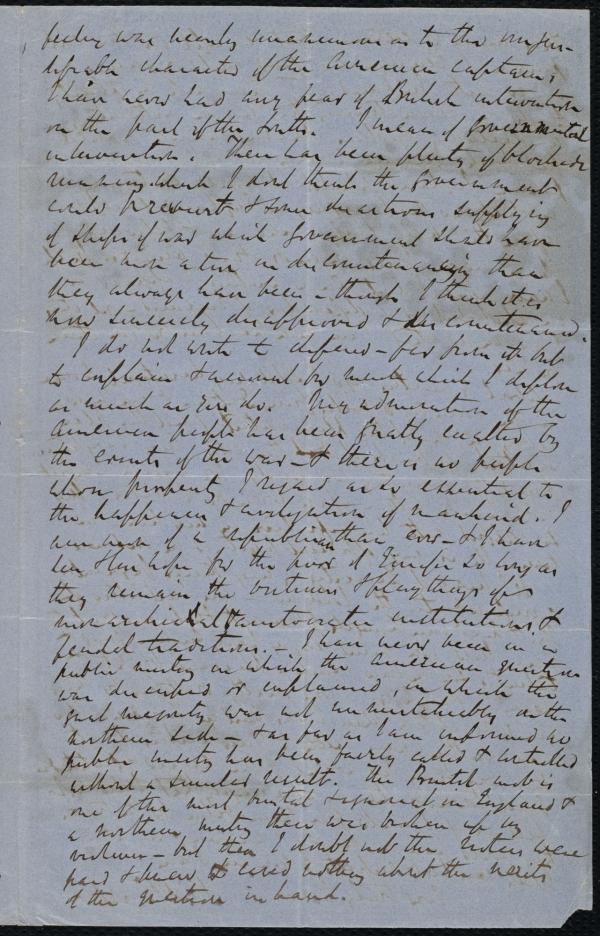 feeling was nearly unanimous as to the unjus-
tifiable character of the American captains,
I have never had any fear of British intervention
on the part of the South. I mean of governmental
intervention. There has been plenty of blockade
running which I dont think the government
could prevent & some disastrous supplying
of ships of war which government should have
been more active in discountenancing than
they always have been – though I think it is
now sincerely disapproved & discountenanced.
I do not write to defend – far from it but
to explain & account for much which I deplore
as much as you do. My admiration of the
American people has been greatly exalted by
the events of the war – & there is no people
whose prosperity I regard as so essential to
the happiness & civilization of mankind. I
am more of a republican than ever – & I have
less & less hope for the poor of Europe so long as
they remain the victims & playthings of
monarchical & aristocratic institutions &
feudal traditions. – I have never been in a
public meeting in which the American question
was discussed or explained, in which the
great majority was not unmistakeably on the
northern side – & as far as I am informed no
public meeting has been fairly called & controlled
without a similar result. The Bristol mob is
one of the most brutal & ignorant in England &
a northern meeting there was broken up by
violence – but then I doubt not the rioters were
paid & knew & cared nothing about the merits
of the question in hand.